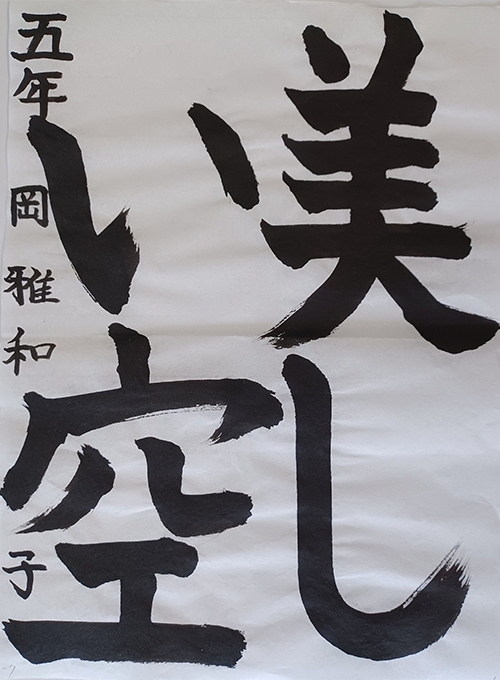 美し
い空
五年 岡雅和子